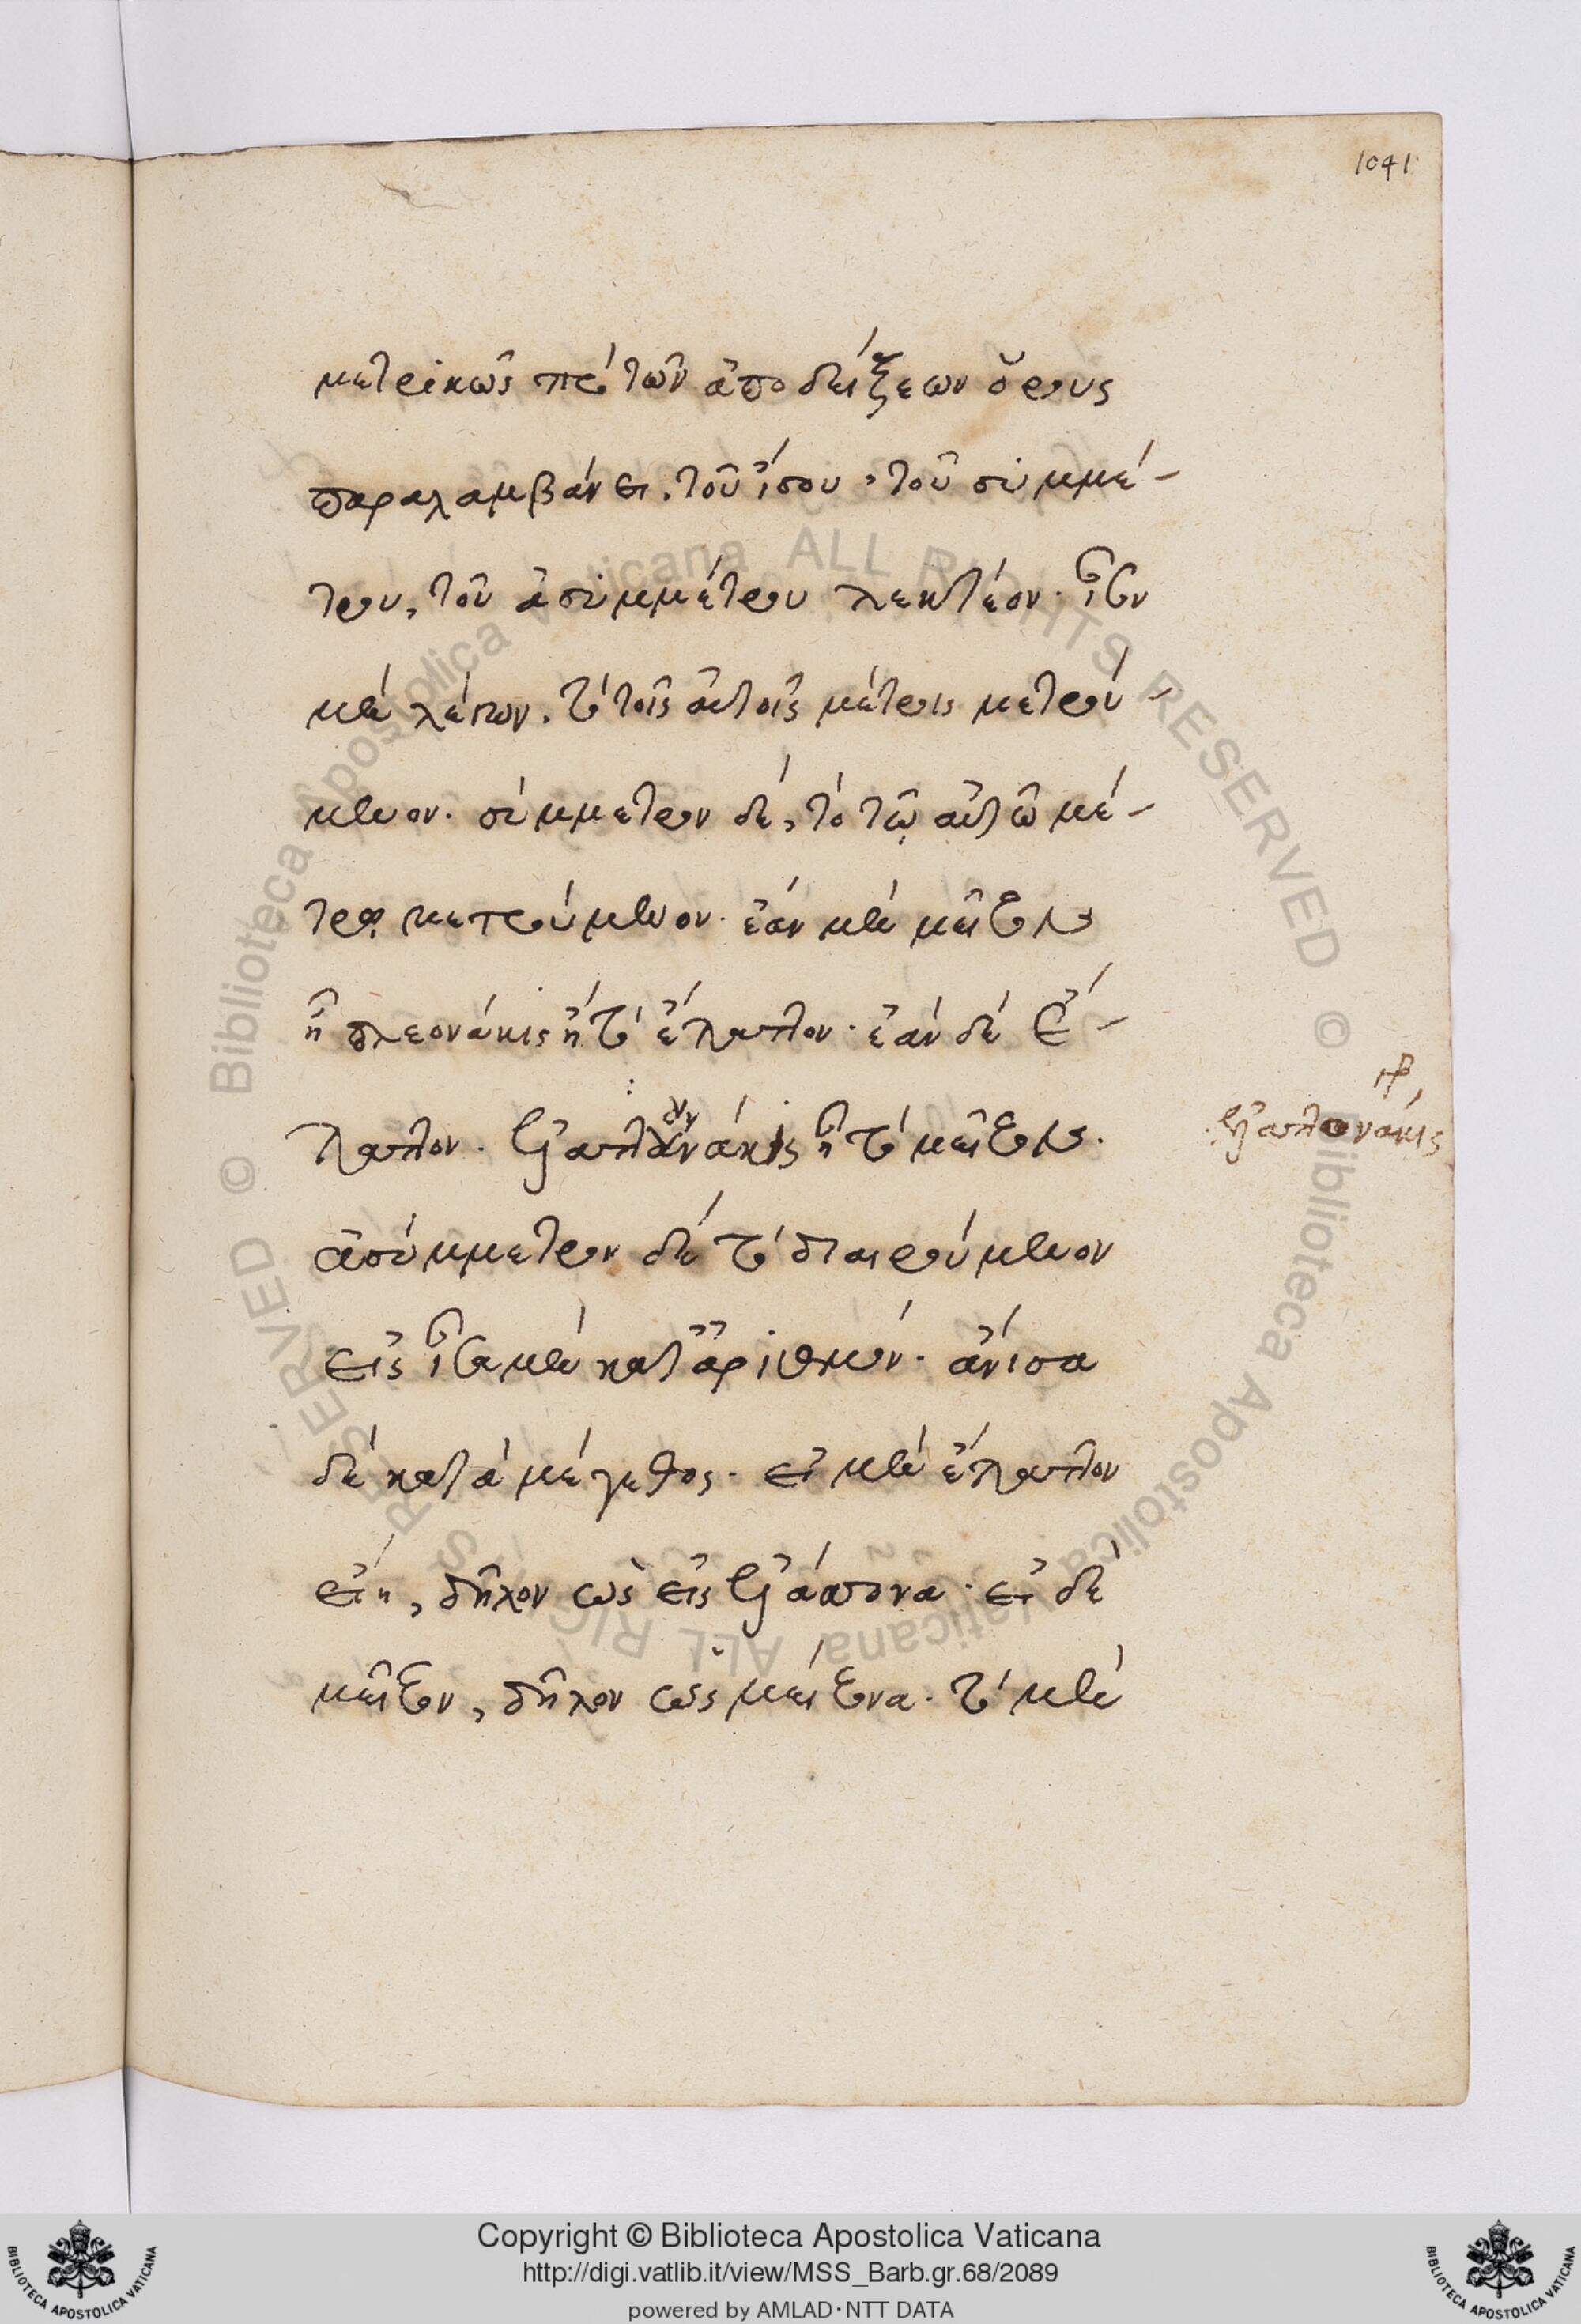 1041
μετρικῶς πρὸ τῶν ἀποδείξεων ὅρους
παραλαμβάνει. τοῦ ἴσου, τοῦ συμμέ-
τρου, τοῦ ἀσυμμέτρου λεκτέον. ἴσον
μὲν λέγων, τὸ τοῖς αὐτοῖς μέτροις μετρού-
μενον. σύμμετρον δέ, τὸ τῷ αὐτῷ μέ-
τρῳ μετρούμενον. ἐὰν μὲν μεῖζον
ᾖ πλεονάκις ἢ τὸ ἔλαττον. ἐὰν δὲ ἔ-
λαττον. ἐλαττονάκις ἢ τὸ μεῖζον.
ἐλαττονάκις
ἀσύμμετρον δὲ τὸ διαιρούμενον
εἰς ἴσα μὲν κατ' ἀριθμόν. ἄνισα
δὲ κατὰ μέγεθος. εἰ μὲν ἔλαττον
εἴη, δῆλον ὡς εἰς ἐλάττονα. εἰ δὲ
μεῖζον, δῆλον ὡς μείζονα. τὸ μὲν
Copyright © Biblioteca Apostolica Vaticana
http://digi.vatlib.it/view/MSS_Barb.gr.68/2089
powered by AMLAD·NTT DATA
BIBLIOTECA APOSTOLICA VATICANA
BIBLIOTECA APOSTOLICA VATICANA
© Biblioteca Apostolica Vaticana ALL RIGHTS RESERVED
© Biblioteca Apostolica Vaticana ALL RIGHTS RESERVED